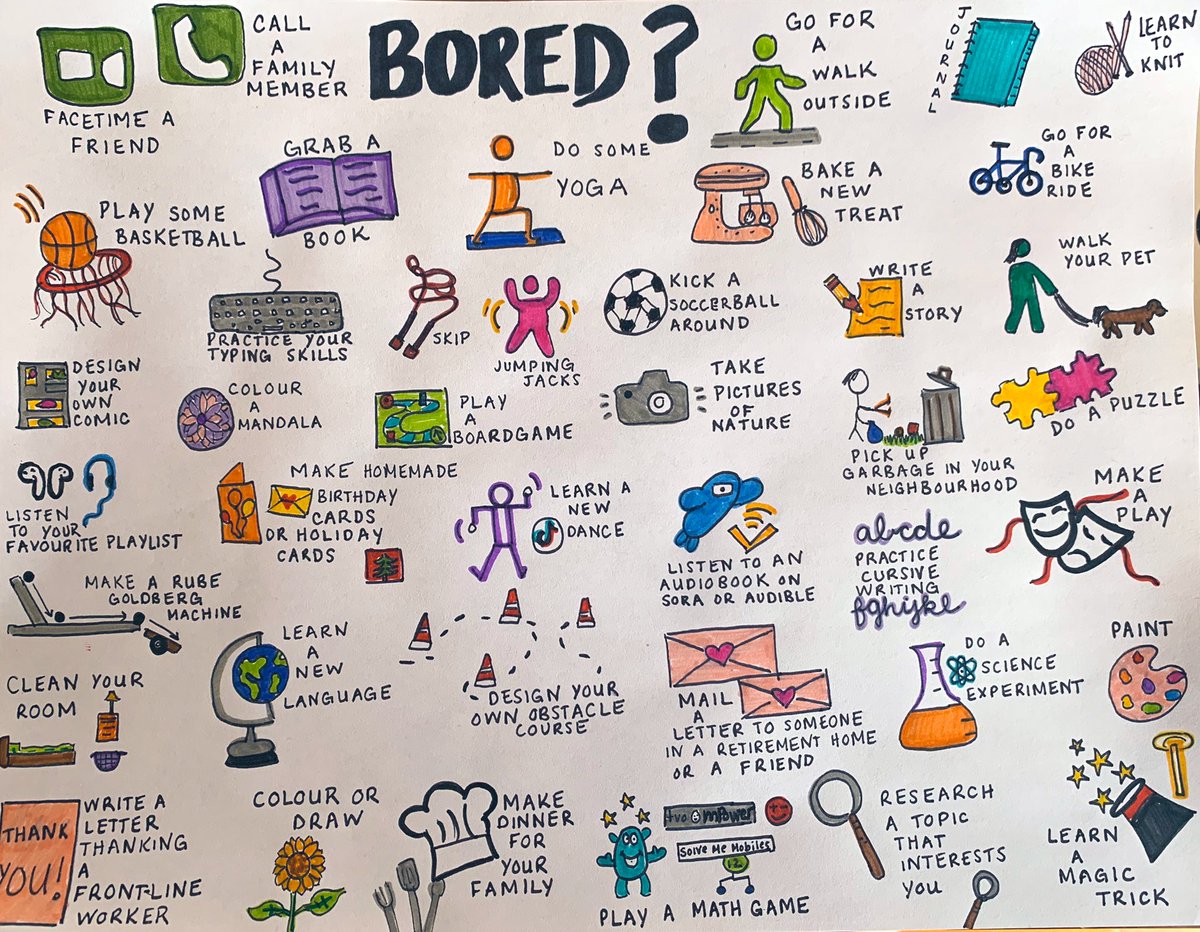 BORED?
FACETIME A
FRIEND
CALL
A
FAMILY
MEMBER
GO FOR
A
WALK
OUTSIDE
JOURNAL
LEARN
TO
KNIT
PLAY SOME
BASKETBALL
GRAB A
BOOK
DO SOME
YOGA
BAKE A
NEW
TREAT
GO FOR
A
BIKE
RIDE
PRACTICE YOUR
TYPING SKILLS
SKIP
JUMPING
JACKS
KICK A
SOCCERBALL
AROUND
WRITE
A
STORY
WALK
YOUR PET
DESIGN
YOUR
OWN
COMIC
COLOUR
A
MANDALA
PLAY
A
BOARDGAME
TAKE
PICTURES
OF
NATURE
PICK UP
GARBAGE IN YOUR
NEIGHBOURHOOD
DO A PUZZLE
LISTEN
TO YOUR
FAVOURITE PLAYLIST
MAKE HOMEMADE
BIRTHDAY
CARDS
OR HOLIDAY
CARDS
LEARN A
NEW
DANCE
LISTEN TO AN
AUDIOBOOK ON
SORA OR AUDIBLE
abcde
PRACTICE
CURSIVE
WRITING
fghijkl
MAKE
A
PLAY
MAKE A RUBE
GOLDBERG
MACHINE
LEARN
A
NEW
LANGUAGE
DESIGN YOUR
OWN OBSTACLE
COURSE
MAIL
A
LETTER TO SOMEONE
IN A RETIREMENT HOME
OR A FRIEND
DO A
SCIENCE
EXPERIMENT
PAINT
CLEAN YOUR
ROOM
THANK
YOU!
WRITE A
LETTER
THANKING
A
FRONT-LINE
WORKER
COLOUR OR
DRAW
MAKE
DINNER
FOR
YOUR
FAMILY
tvo mPower
Solve Me Mobiles
12
PLAY A MATH GAME
RESEARCH
A TOPIC
THAT
INTERESTS
YOU
LEARN
A
MAGIC
TRICK